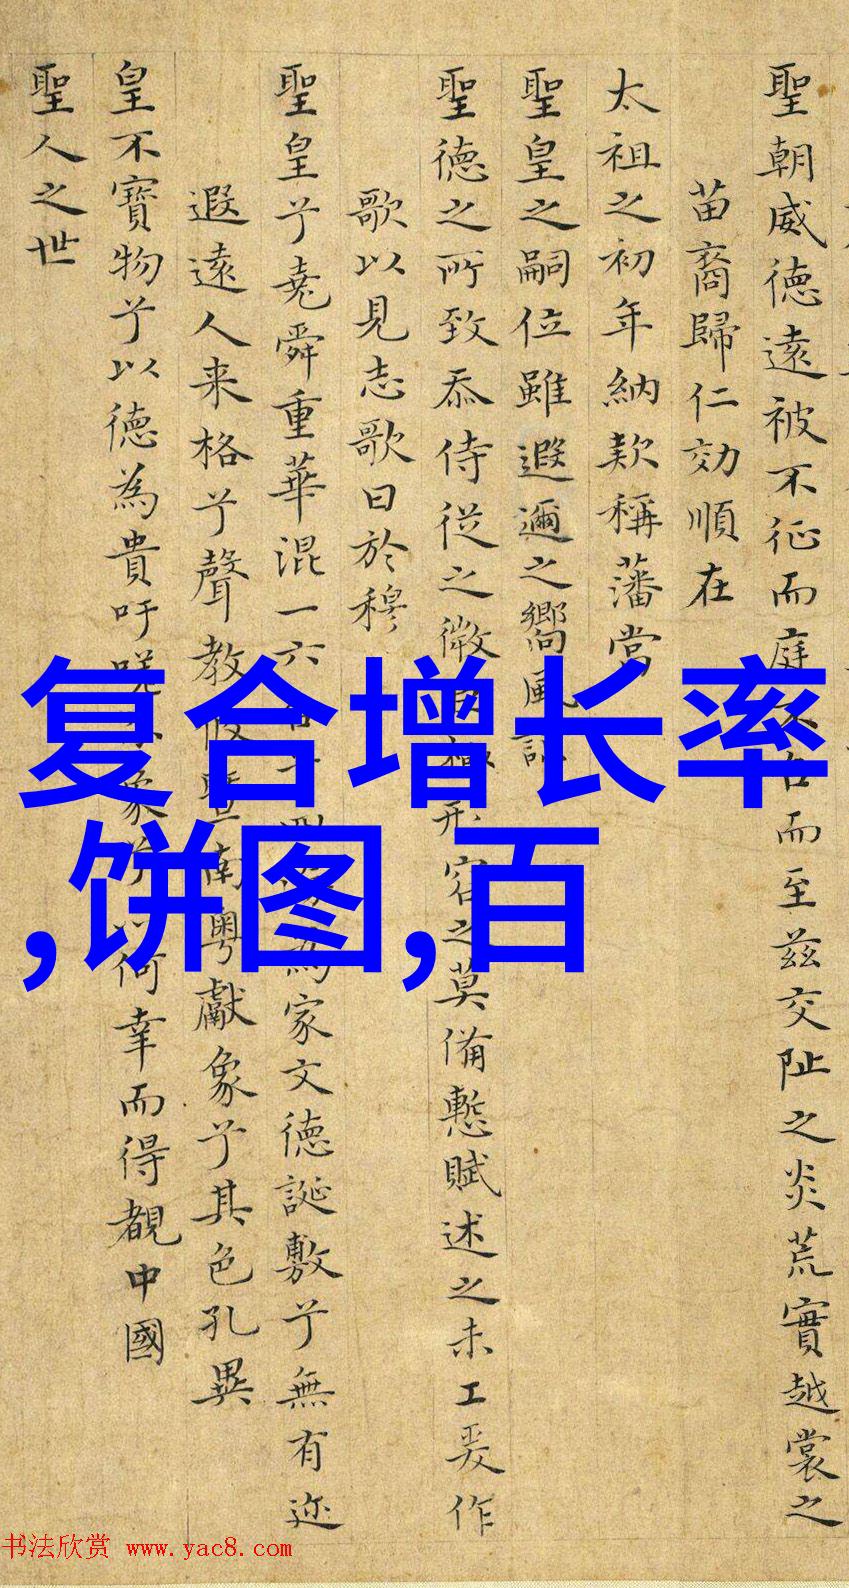 聖朝威德遠被不征而庭不召而至茲交阯之炎荒實越裳之
苗裔歸仁効順在
太祖之初年納款稱藩當
聖皇之嗣位雖遐邇之嚮風
聖德之所致忝侍從之微形容之莫備慙賦述之未工爰作
歌以見志歌曰於穆
聖皇兮堯舜重華混一六為家文德誕敷兮無有迩
遐遠人来格兮聲教暨南粤獻象兮其色孔異
皇不寶物兮以德為貴吁象兮何幸而得覩中國
聖人之世
复合增长率
,饼图,百
书法欣赏 www.yac8.com